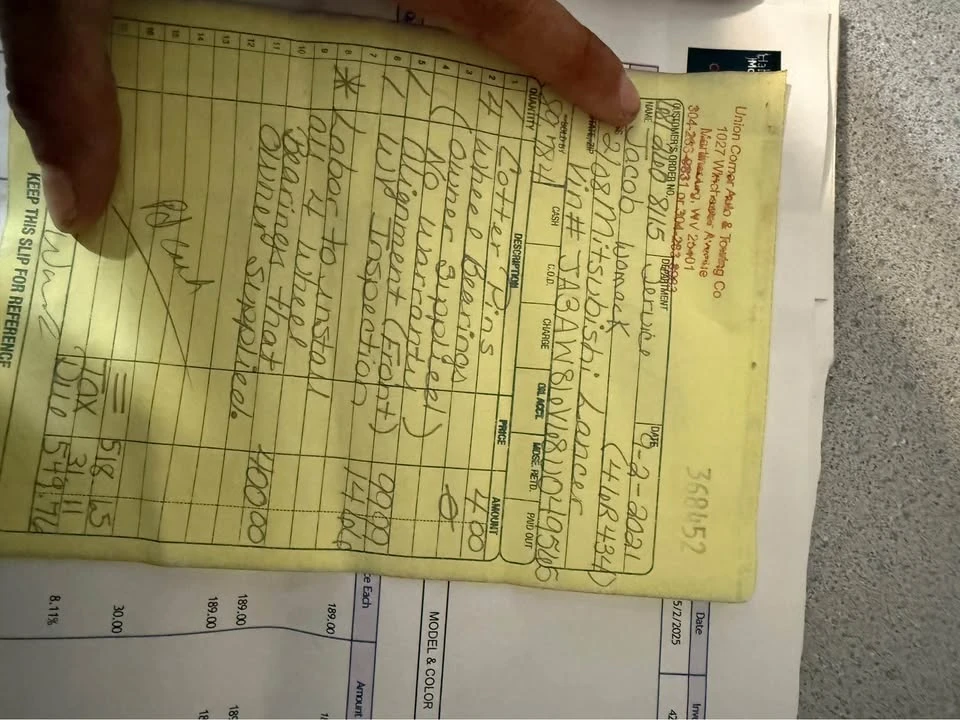 Union Corner Auto & Towing Co
1027 Winchester Avenue
Martinsburg, WV 25401
304-263-9831 or 304-263-8983
368452
CUSTOMER'S ORDER NO.
DEPARTMENT
Service
DATE
9-2-2021
NAME
Jacob Womack
2108 Mitsubishi Lancer
SOLD BY
CASH
C.O.D.
CHARGE
ON ACCT.
MDSE. RETD.
PAID OUT
QUANTITY
DESCRIPTION
PRICE
AMOUNT
1
4 Cotter Pins 4.00
2
4 Wheel Bearings
3
(Owner Supplied
4
No Warranty)
5
Alignment (Front) 99.99
6
WV Inspection 14.66
7
8
* Labor to install
9
all 4 wheel
10
Bearings that
11
owner supplied. 400.00
12
13
14
15
16
= 518.65
Tax 31.11
Due 549.76
KEEP THIS SLIP FOR REFERENCE
Date
5/2/2025
MODEL & COLOR
ce Each
Amount
189.00
189.00
189.00
30.00
8.11%